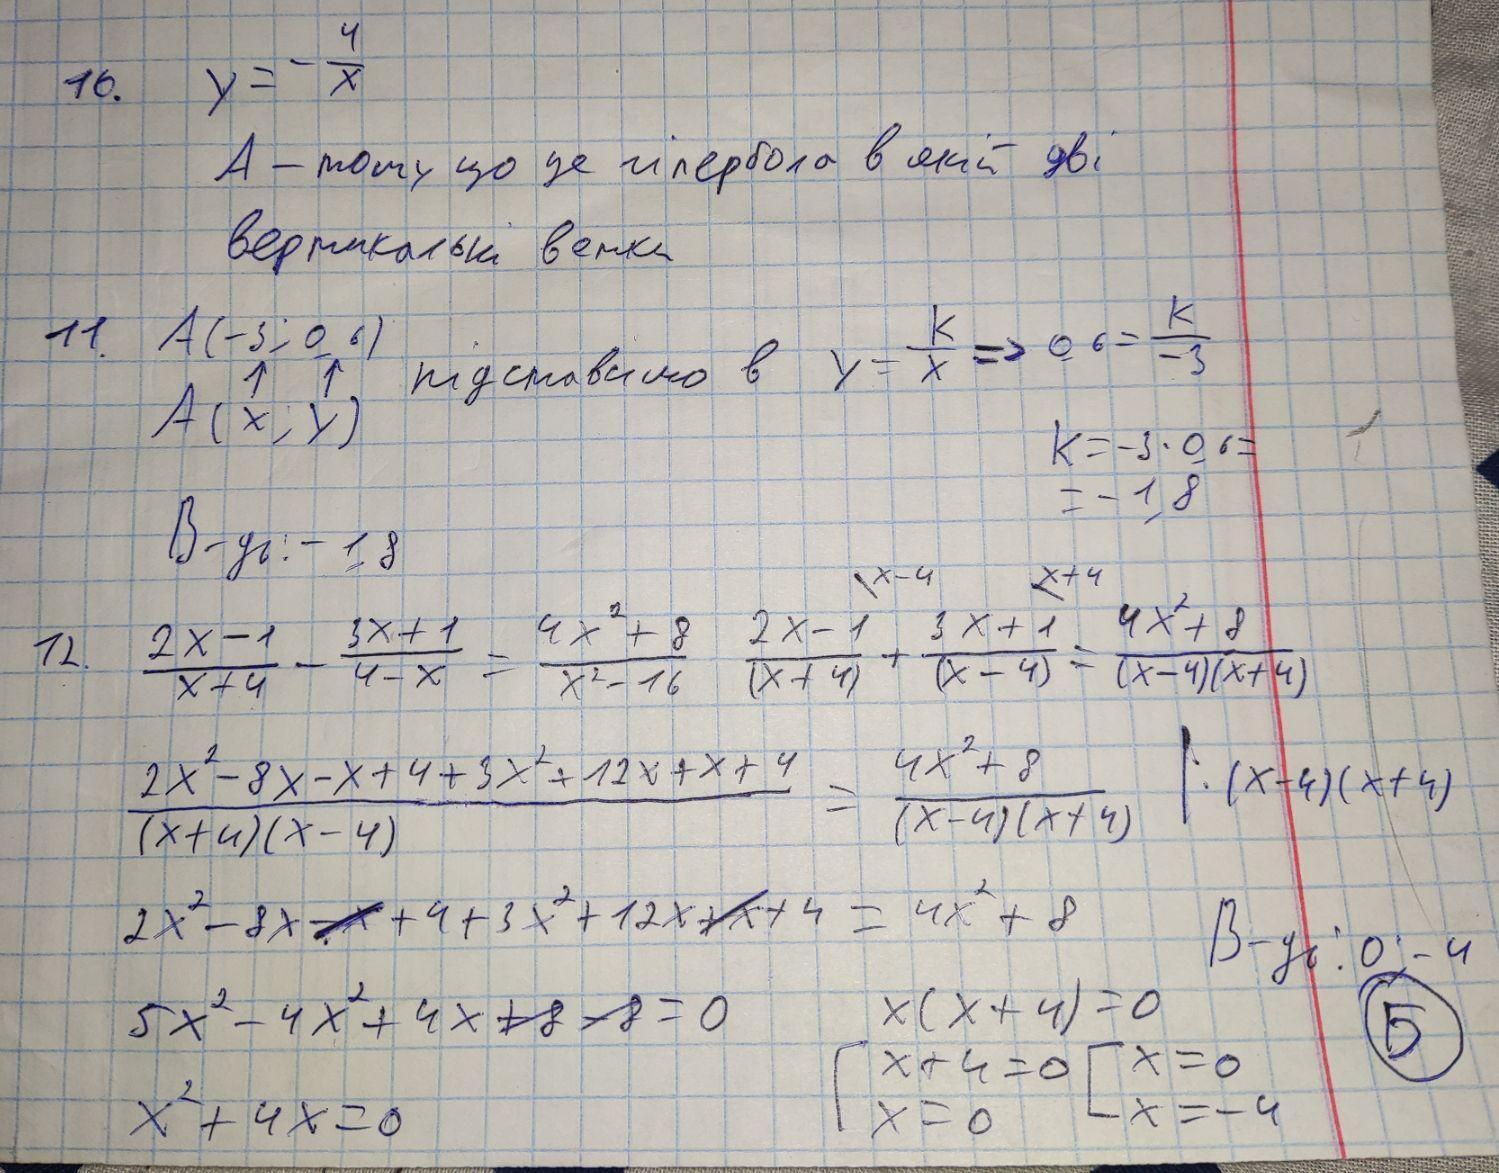 10. y = - 4/x
А – тому що це гіпербола в якій дві
вертикальні ветки
11. A(-3; 0,6)
A(x; y) підставімо в y = k/x => 0,6 = k/-3
k = -3 · 0,6 =
= -1,8
В-дь: -1,8
12. (2x-1)/(x+4) - (3x+1)/(4-x) = (4x²+8)/(x²-16) (2x-1)/(x+4) \x-4 + (3x+1)/(x-4) \x+4 = (4x²+8)/((x-4)(x+4))
(2x²-8x-x+4+3x²+12x+x+4)/((x+4)(x-4)) = (4x²+8)/((x-4)(x+4)) | · (x-4)(x+4)
2x²-8x-x+4+3x²+12x+x+4 = 4x²+8
В-дь: 0; -4
5x²-4x²+4x+8-8=0
x(x+4)=0
Б
x²+4x=0
[ x+4=0 [ x=0
x=0 x=-4